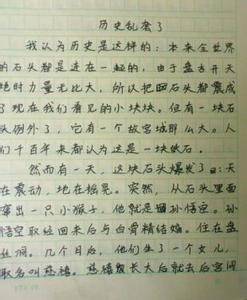 历史乱套了
我认为历史是这样的：本来全世界
的石头都是连在一起的，由于盘古开天
地时力量无比大，所以把石头都震成
了现在我们看见的小块块。但有一块石
头例外了，它有一个故宫城那么大。人
们千百年来都认为这是一块纸石。
然而有一天，这块石头爆发了：天
在震动，地在摇晃。突然，从石头里面
蹦出一只小猴子，他就是孙悟空。孙
悟空取经回来后与白骨精结婚。住在盘
丝洞。几个月后，他们生了一个女儿，
取名叫慈禧。慈禧长大后就去后宫闹